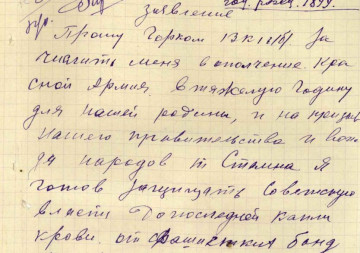 год. рожд. 1899.
Заявление
Прошу Горком ВКП(б) За
числить меня в ополчение Кра
сной Армия. в тяжелую годину
для нашей родина, и на призыв
нашего правительства и вож
дя народов т Сталина я
готов защищать Советскую
власти До последней капли
крови. от фашистких банд